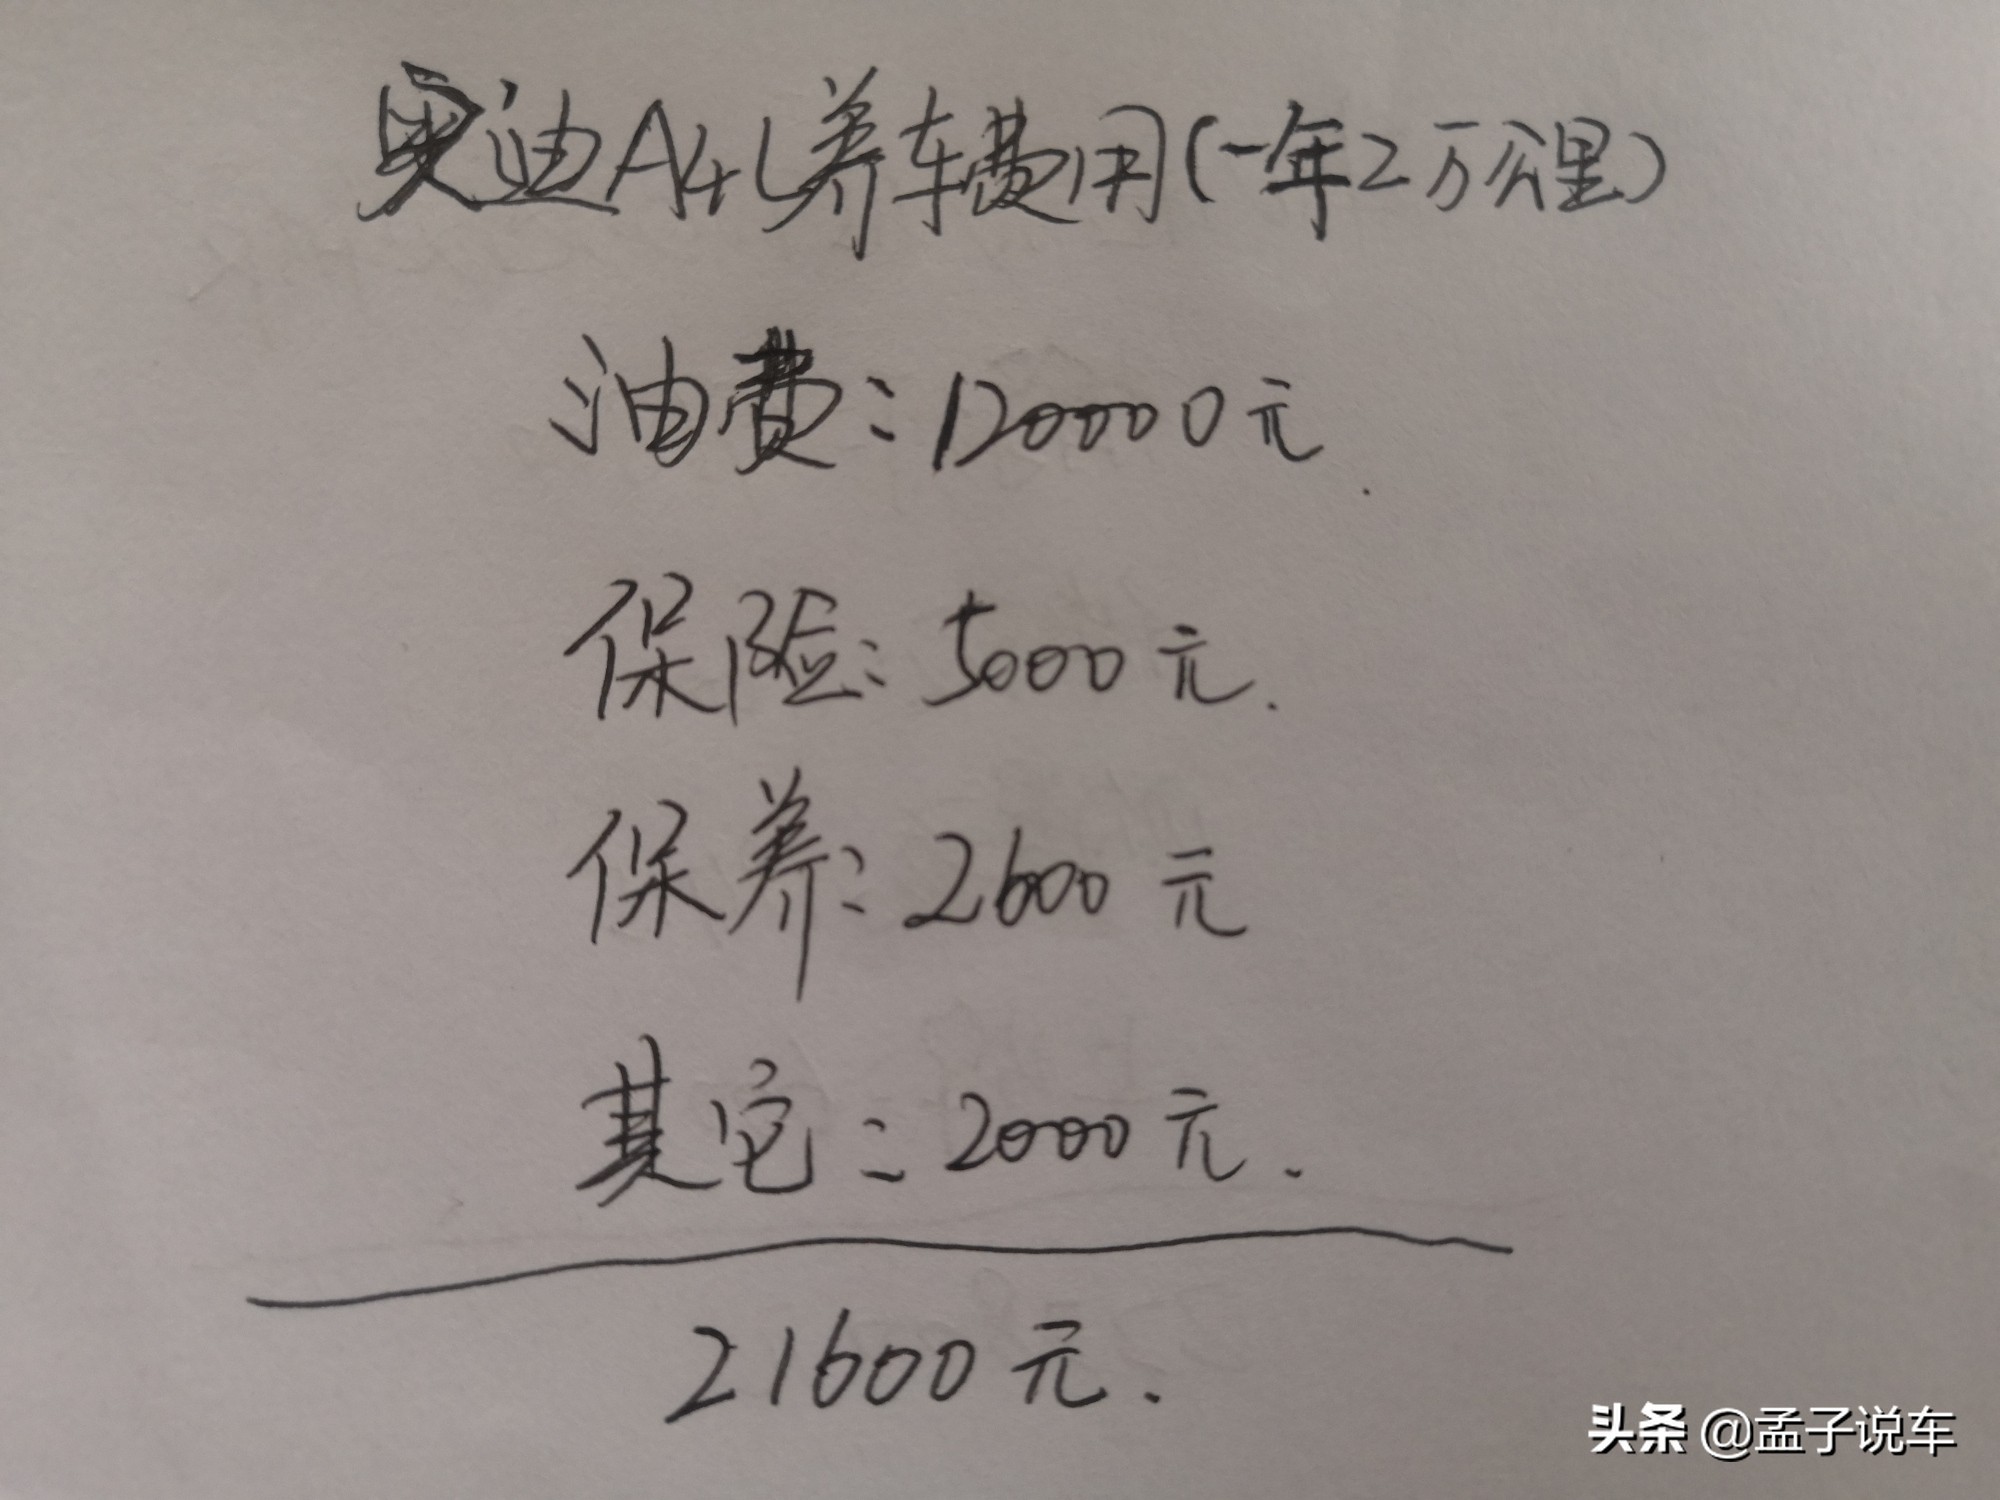 奥迪A4L养车费用(一年2万公里)
油费:12000元
保险:5000元.
保养:2600元
其它:2000元.
21600元.
头条 @孟子说车